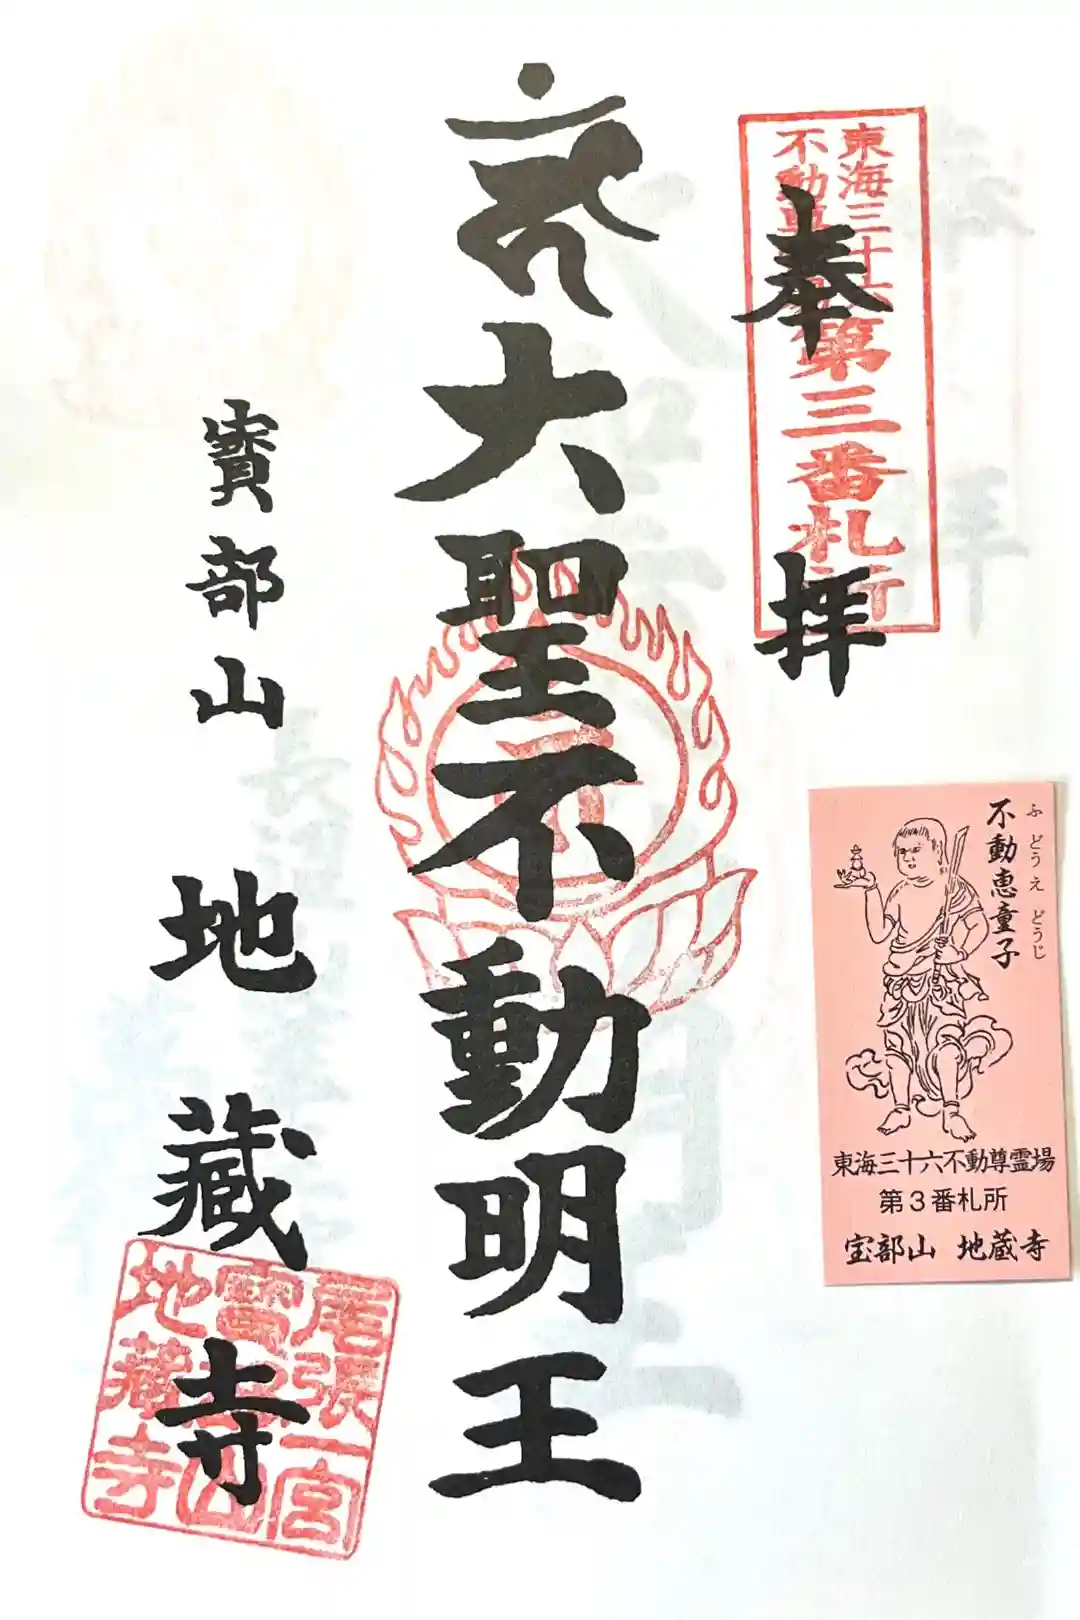 奉拝
東海三十六
不動尊
第三番札所
大聖不動明王
寳部山
地蔵寺
尾張一宮
寳部山
地蔵寺
不動恵童子
ふどうえどうじ
東海三十六不動尊霊場
第3番札所
宝部山 地蔵寺